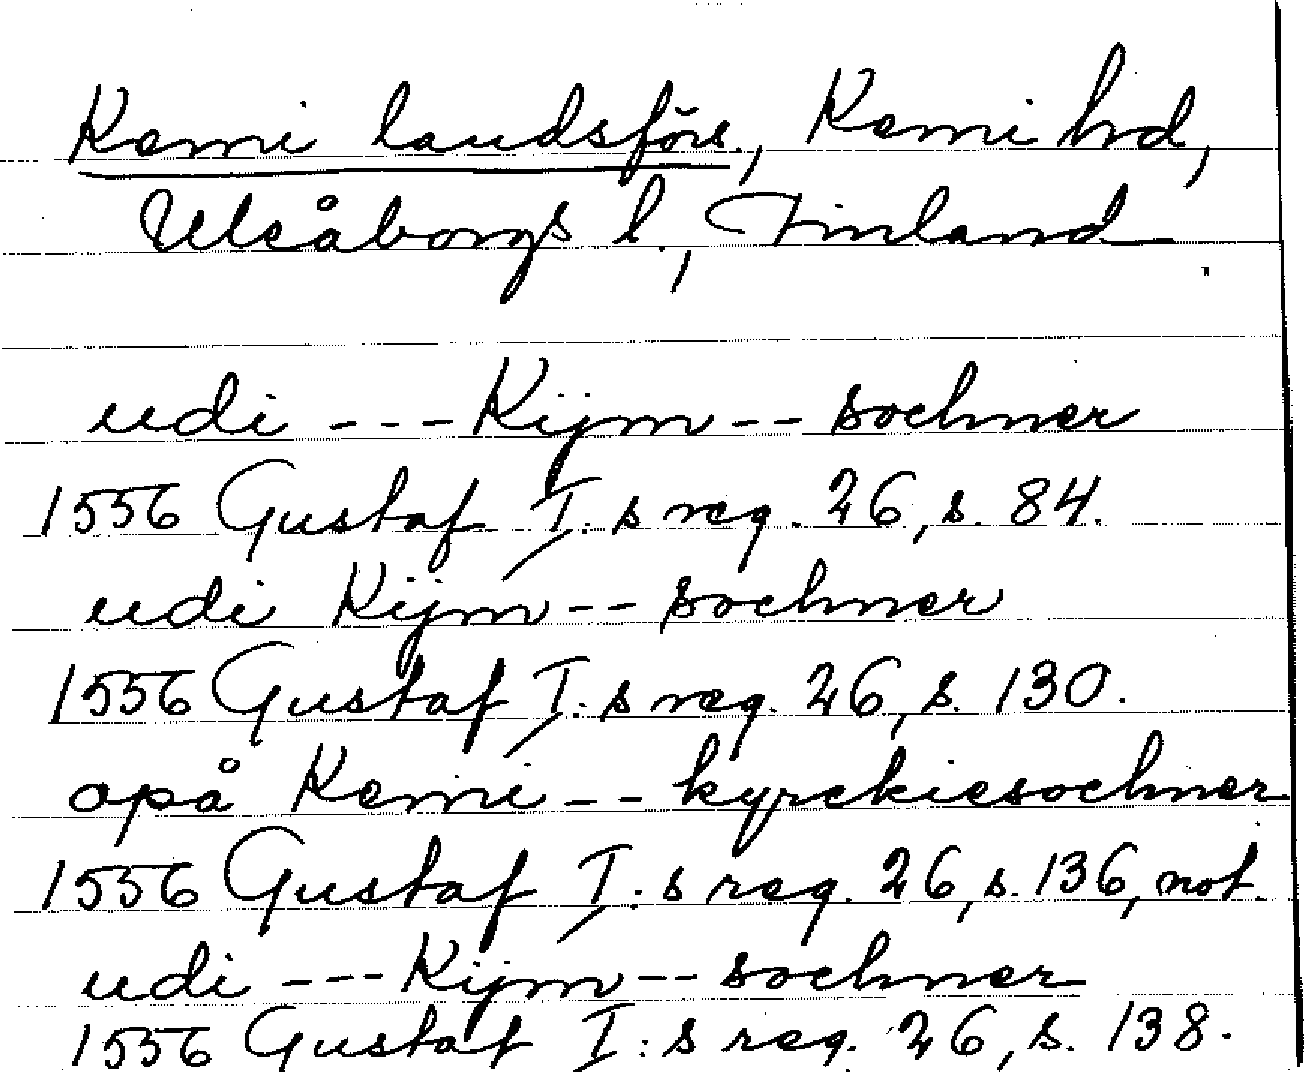 Kemi landsförs., Kemi hrd,
Uleåborgs l., Finland.
udi --- Kijm -- sochner
1556 Gustaf I:s reg. 26, s. 84.
udi Kijm -- sochner
1556 Gustaf I:s reg. 26, s. 130.
opå Kemi -- kyrckiesochner
1556 Gustaf I:s reg. 26, s. 136, not.
udi --- Kijm -- sochner
1556 Gustaf I:s reg. 26, s. 138.